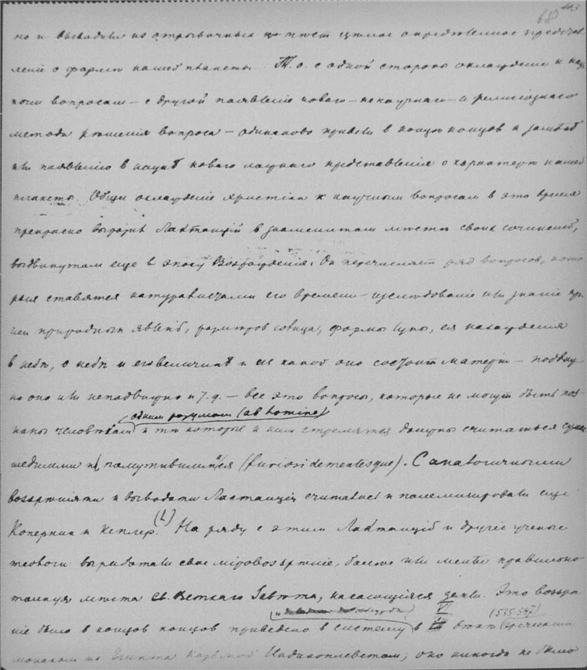 но и выходила из отрывочных цитат целое определенное представ
ление о форме нашей планеты. Т. о. с одной стороны охлаждение к нау
ным вопросам – с другой появление нового – ненаучного – а религіознаго
метода рѣшенія вопроса – одинаково привели в конце концов к
появленію в наукѣ новаго ложнаго представления о характерѣ нашей
планеты. Общее охлаждение христиан к научным вопросам в это время
прекрасно выразил Лактанций в знаменитом мѣстѣ своих сочинений,
выдвинутом еще в эпоху Возрождения: Он перечисляет ряд вопросов, кото
рые ставятся натуралистами его времени – изслѣдование или знание при
чин природных явленій, размѣров солнца, формы луны, ея нахождения
в небѣ, о небѣ и его величинѣ и из какой оно состоит материи – подвиж
но оно или неподвижно и т. д. – все это вопросы, которые не могут быть поз
одним разумом (ab homine)
наны человѣком и тѣ которые к ним стремятся должны считаться сума
шедшими и помутившимися (furiosi dementesque). С аналогичными
воззрѣниями и выводами Лактанция считались и полемизировали еще
Коперник и Кеплер. (1) На ряду с этим Лактанций и другие ученые
теологи выработали свое міровоззрѣніе, более или менѣе правильно
толкуя мѣста св. Ветхаго Завѣта, касающияся земли. Это воззрѣ
VI (535-547)
ние было в конце концов приведено в систему в
монахом из Египта Индикопловстом, оно никогда не было